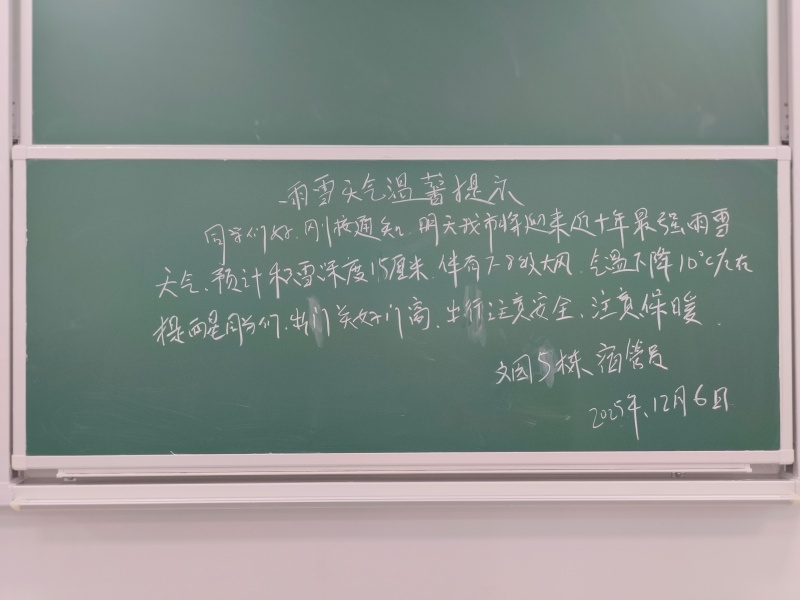 雨雪天气温馨提示
同学们好，刚接通知，明天我市将迎来近十年最强雨雪
天气、预计积雪深度15厘米，伴有7-8级大风，气温下降10℃左右
提醒同学们，出门关好门窗，出行注意安全，注意保暖．
文园5栋宿管员
2025年、12月6日